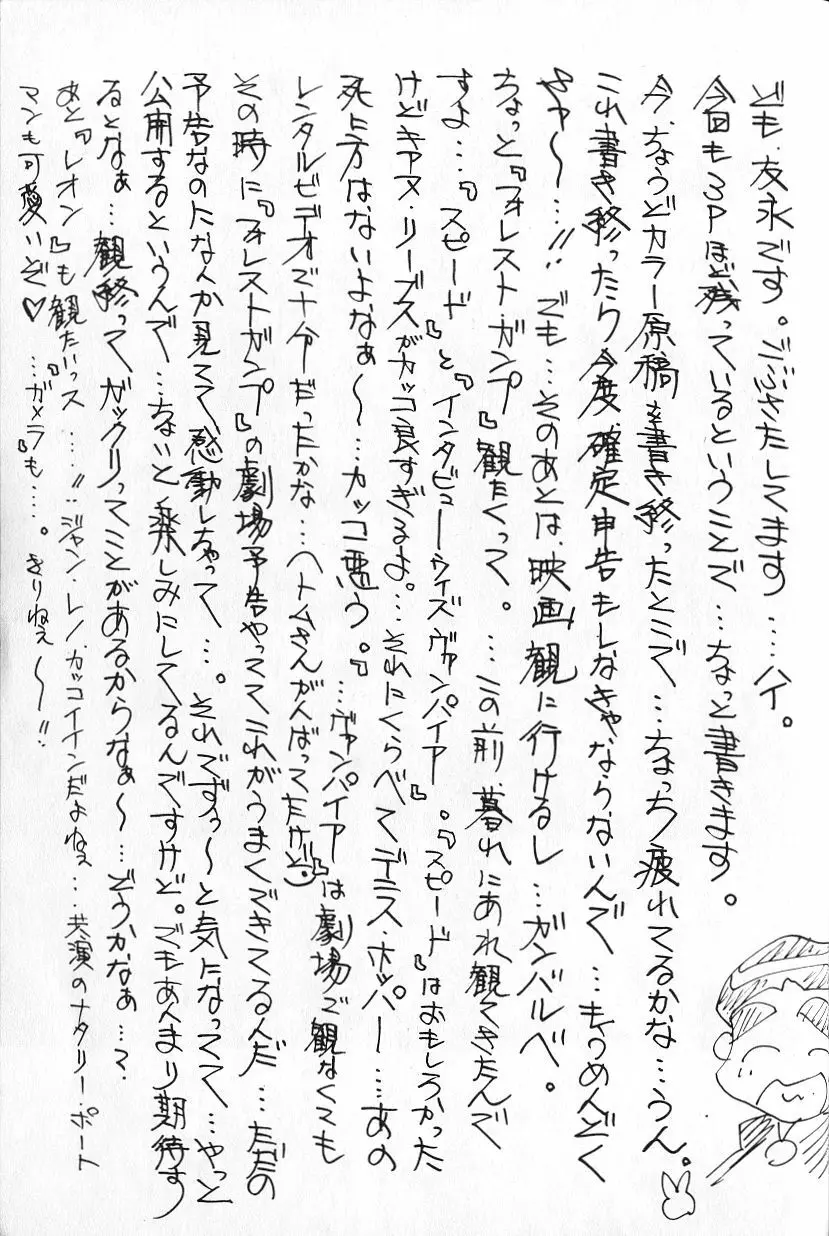 ども、友永です。ごぶさたしてます....ハイ。
今回も3Pほど残っているということで...ちょっと書きます。
今、ちょうどカラー原稿を書き終ったとこで...ちょっち疲れてるかな...うん。
これ書き終ったら今度、確定申告もしなきゃならないんで...もうめんどく
さァ〜...!!でも...そのあとは、映画観に行けるし...ガンバルベ。
ちょっと『フォレスト・ガンプ』観たくって。...この前暮れにあれ観てきたんで
すよ...『スピード』と『インタビューウィズヴァンパイア』。『スピード』はおもしろかった
けどキアヌ・リーブスがカッコ良すぎるよ。...それにくらべてデニス・ホッパー....あの
死に方はないよなぁ〜...カッコ悪う。『...ヴァンパイア』は劇場で観なくても
レンタルビデオで十分だったかな...ヘトムさんがんばってたけど
その時に『フォレストガンプ』の劇場予告やっててこれがうまくできてるんだ...ただの
予告なのになんか見てて、感動しちゃって...。それでずぅ〜と気になってて...やっと
公開するというんで...ちょいと楽しみにしてるんですけど。でもあんまり期待す
るとなぁ...観終ってガックリってことがあるからなぁ〜...どうかなぁ...て、
あと『レオン』も観たいっス....!!ジャン・レノ、カッコイインだよねぇ...共演のナタリー・ポート
マンも可愛いぞ♡...『ガメラ』も....。きりねぇ〜!!